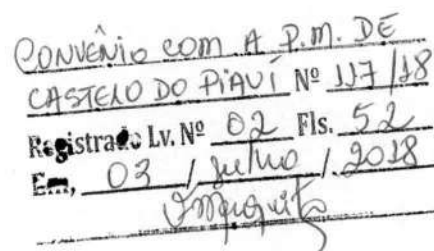 CONVÊNIO COM A P.M. DE
CASTELO DO PIAUÍ Nº 117/18
Registrado Lv. Nº 02 Fls. 52
Em, 03 / Julho / 2018